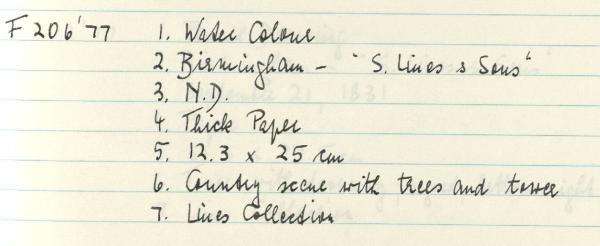 F 206'77 1. Water Colour
2. Birmingham – "S. Lines & Sons"
3. N.D.
4. Thick Paper
5. 12.3 x 25 cm
6. Country scene with trees and tower
7. Lines Collection